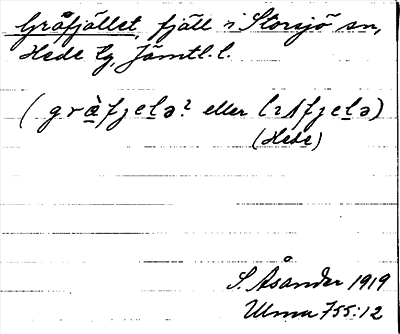 Gråfjället, fjäll i Storsjö sn,
Hede tg, Jämtl. l.
(gràfjelə? eller
(Hede)
S. Åsander 1919
Ulma 755:12